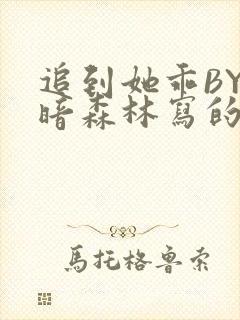 追到她乖BY
暗森林寫的
馬托格魯索